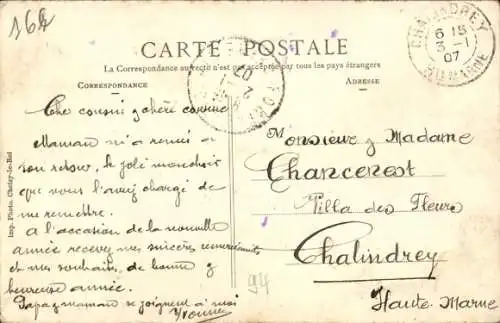 164
CARTE POSTALE
La Correspondance au recto n'est pas acceptée par tous les pays étrangers
CORRESPONDANCE
ADRESSE
CHALINDREY
6 15
3 - 1
07
Hte MARNE
Che cousin & chère cousine
Maman m'a remis à
son retour, le joli mouchoir
que vous l'avez chargé de
me remettre.
A l'occasion de la nouvelle
année recevez mes sincères remerciements
et mes souhaits de bonne &
heureuse année.
Papa, maman se joignent à moi
Yvonne
Monsieur & Madame
Chancenest
Villa des Fleurs
Chalindrey
Haute-Marne
94
Imp. Photo. Choisy-le-Roi